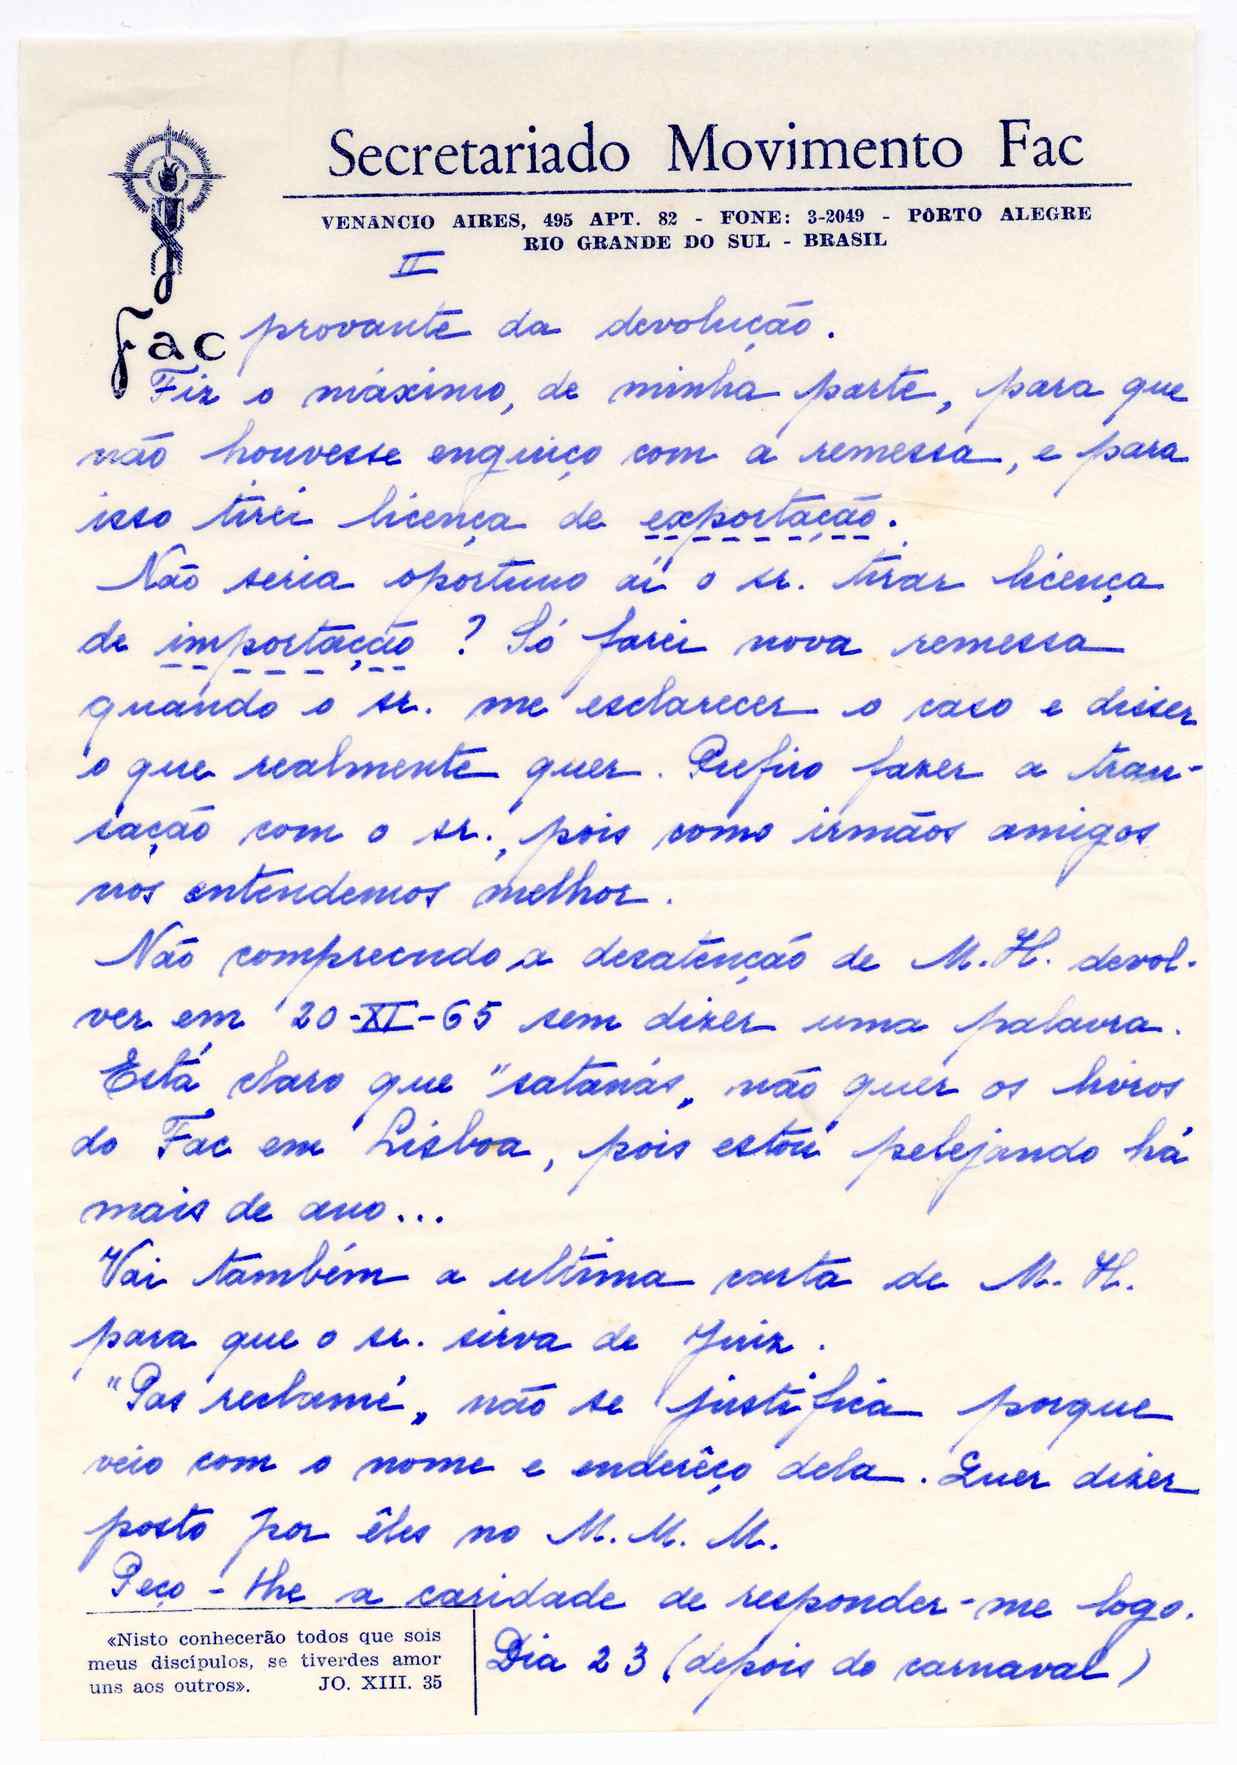 Secretariado Movimento Fac
VENANCIO AIRES, 495 APT. 82 - FONE: 3-2049 - PÔRTO ALEGRE
RIO GRANDE DO SUL - BRASIL
II
Fac
provante da devolução.
Fiz o máximo, de minha parte, para que
não houvesse enguiço com a remessa, e para
isso tirei licença de exportação.
Não seria oportuno aí o sr. tirar licença
de importação? Só farei nova remessa
quando o sr. me esclarecer o caso e disser
o que realmente quer. Prefiro fazer a tran-
sação com o sr., pois como irmãos amigos
nos entendemos melhor.
Não compreendo a desatenção de M. H. devol-
ver em 20-XI-65 sem dizer uma palavra.
Está claro que "satanás„ não quer os livros
do Fac em Lisboa, pois estou pelejando há
mais de ano...
Vai também a ultima carta de M. H.
para que o sr. sirva de Juiz.
"Pas reclamé„ não se justifica porque
veio com o nome e enderêço dela. Quer dizer
posto por êles no M. M. M.
Peço-lhe a caridade de responder-me logo.
Dia 23 (depois do carnaval)
«Nisto conhecerão todos que sois
meus discípulos, se tiverdes amor
uns aos outros». JO. XIII. 35